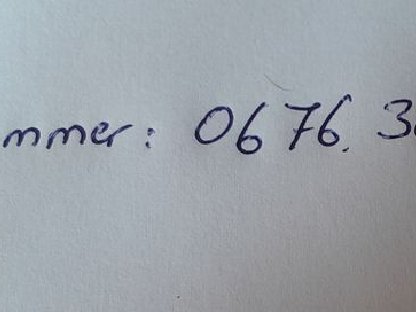 mmer: 0676. 3